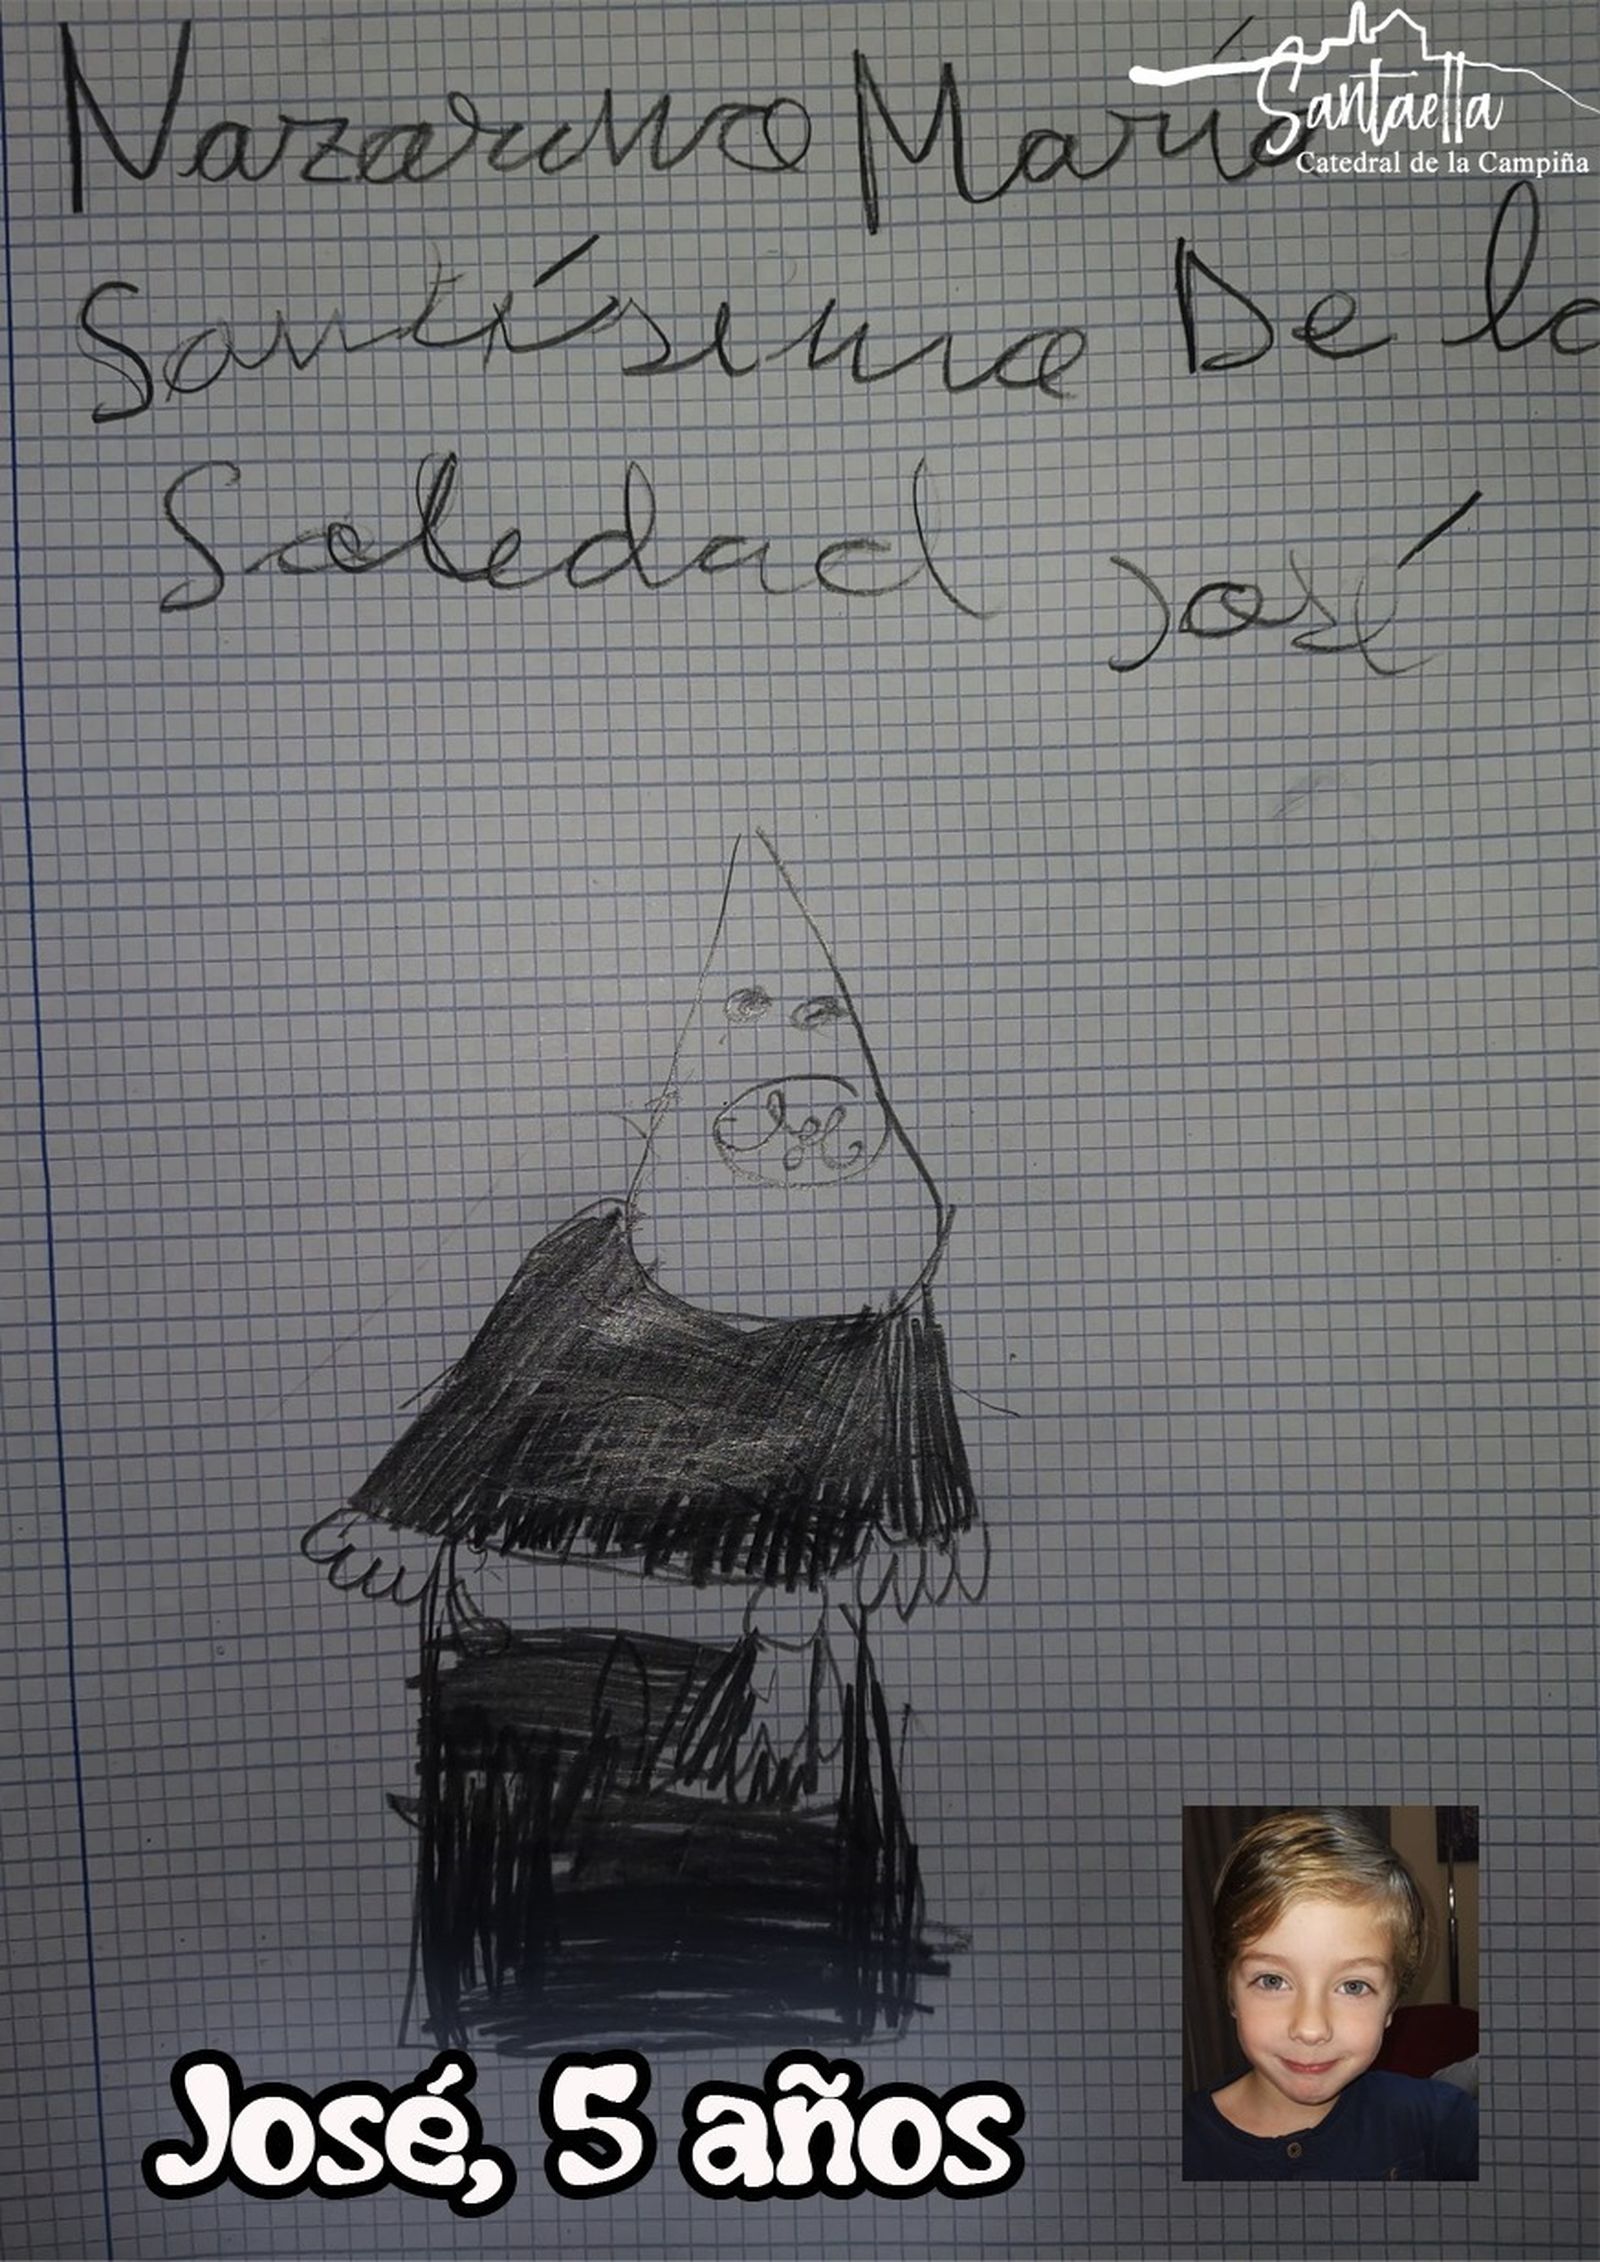 Nazareno María
Santaella
Catedral de la Campiña
Santísima De la
Soledad José
José, 5 años